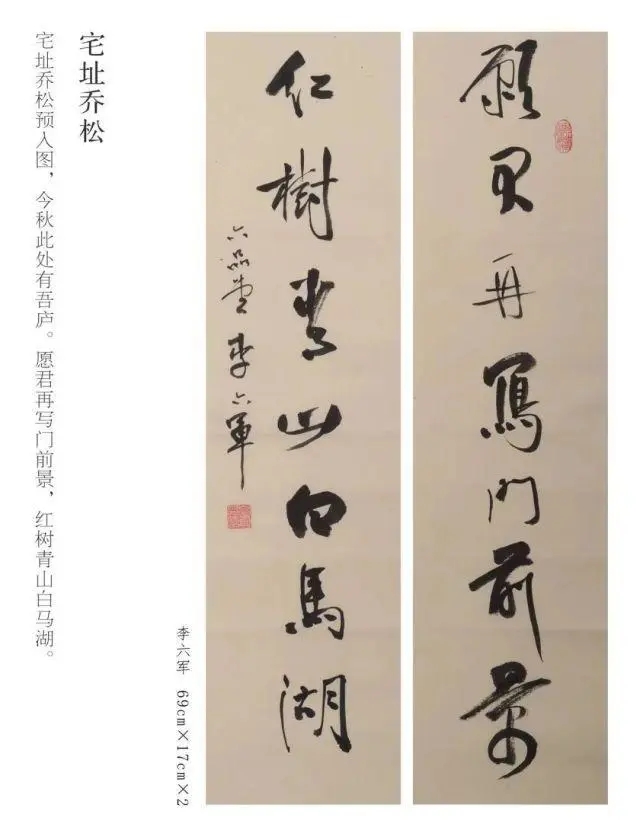 願君再寫門前景
紅樹青山白馬湖
六品堂李六軍
李六军 69cm×17cm×2
宅址乔松
宅址乔松预入图，今秋此处有吾庐。愿君再写门前景，红树青山白马湖。